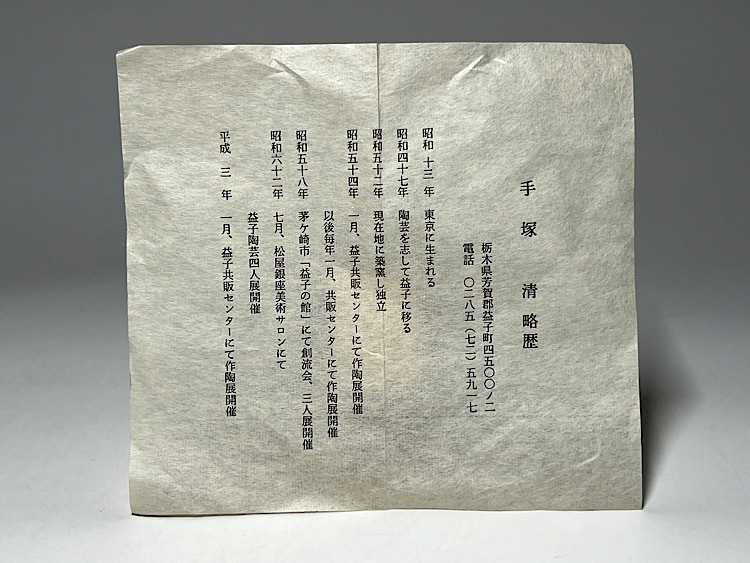 手塚 清 略歴
栃木県芳賀郡益子町四五〇〇ノ二
電話 〇二八五(七二)五九一七
昭和 十三 年 東京に生まれる
昭和四十七年 陶芸を志して益子に移る
昭和五十二年 現在地に築窯し独立
昭和五十四年 一月、益子共販センターにて作陶展開催
以後毎年一月、共販センターにて作陶展開催
昭和五十八年 茅ケ崎市「益子の館」にて創流会、三人展開催
昭和六十二年 七月、松屋銀座美術サロンにて
益子陶芸四人展開催
平成 三 年 一月、益子共販センターにて作陶展開催